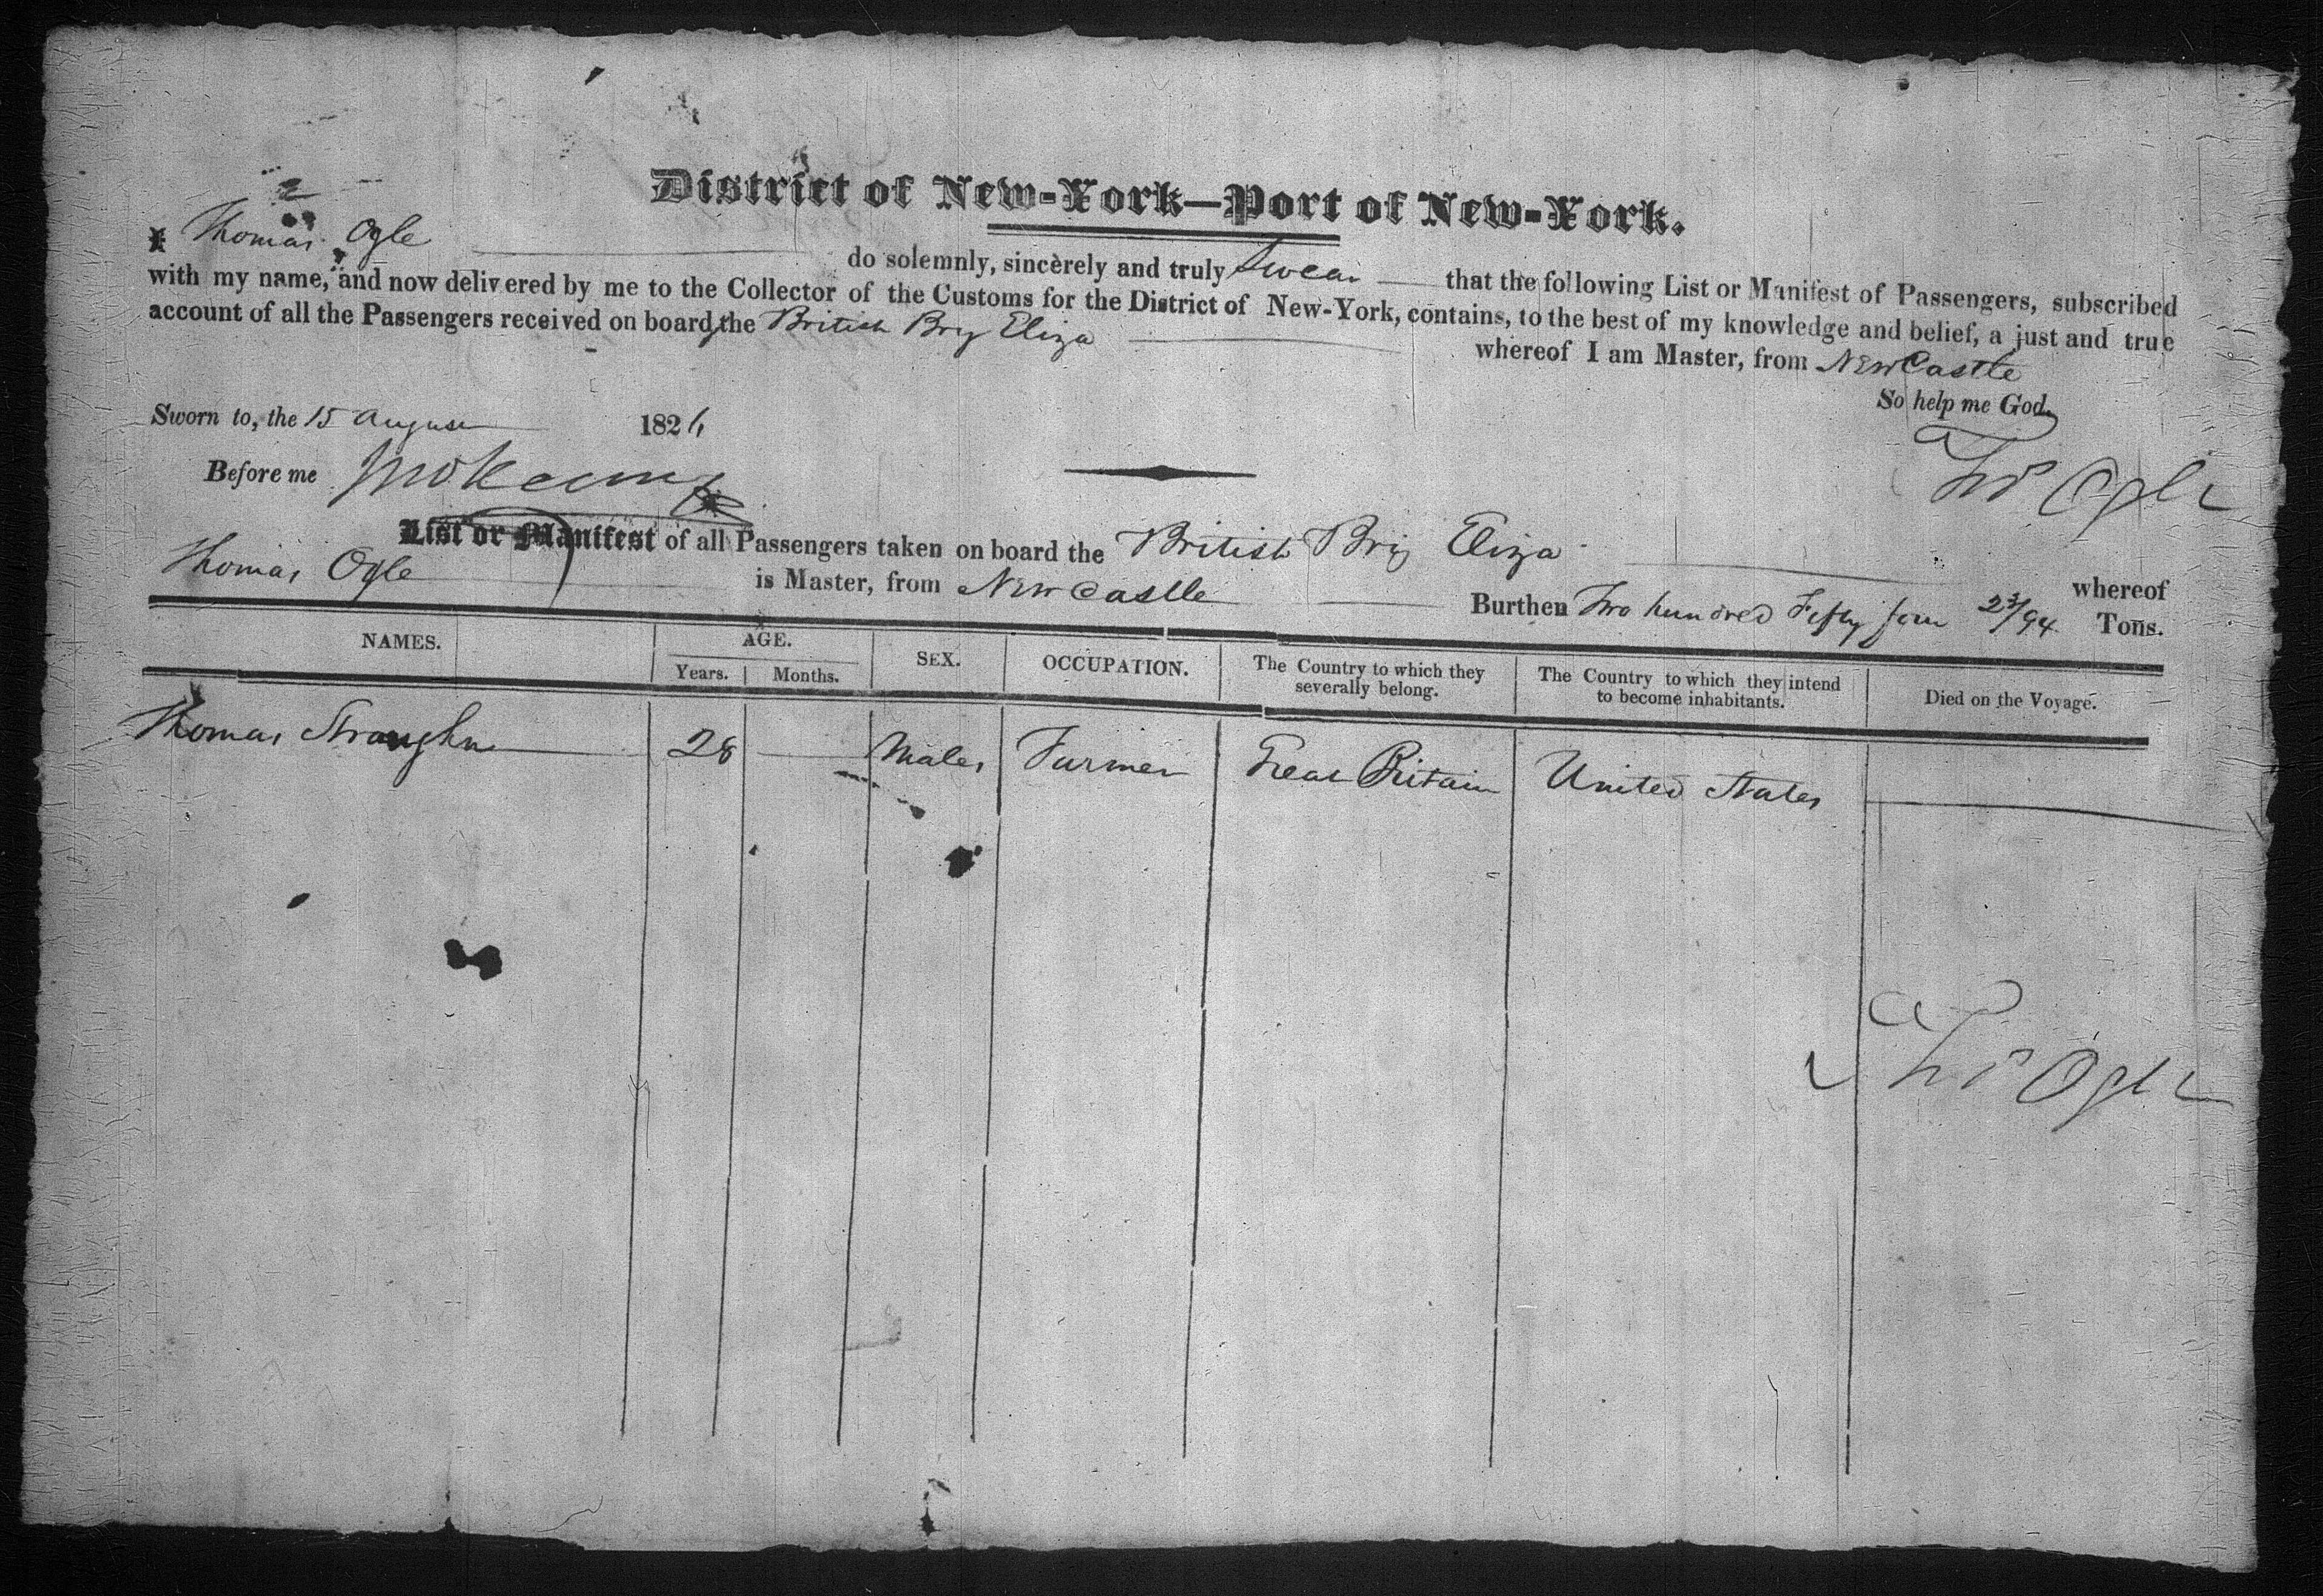 District of New-York—Port of New-York.
I Thomas Ogle do solemnly, sincerely and truly Swear that the following List or Manifest of Passengers, subscribed
with my name, and now delivered by me to the Collector of the Customs for the District of New-York, contains, to the best of my knowledge and belief, a just and true
account of all the Passengers received on board the British Brig Eliza whereof I am Master, from NewCastle
So help me God.
Sworn to, the 15 August 1826
Thos Ogle
Before me
List or Manifest of all Passengers taken on board the British Brig Eliza whereof
Thomas Ogle is Master, from New Castle Burthen Two hundred Fifty four 23/94 Tons.
NAMES. AGE. SEX. OCCUPATION. The Country to which they severally belong. The Country to which they intend to become inhabitants. Died on the Voyage.
Years. Months.
Thomas Straughn 28 Males Farmer Great Britain United States
Thos Ogle